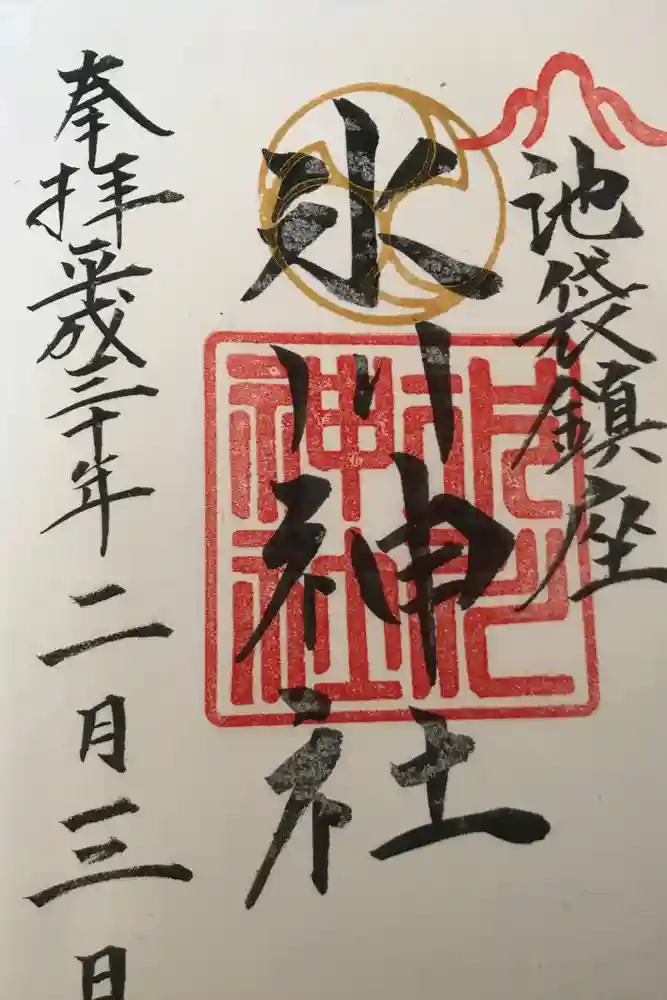 池袋鎮座
氷川神社
奉拝平成三十年二月三日